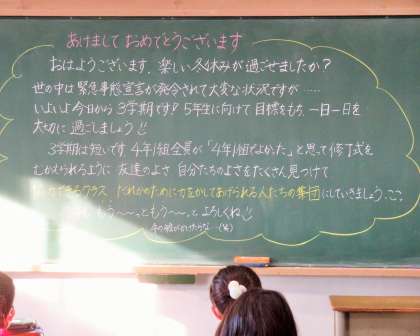 あけまして おめでとうございます
おはようございます。楽しい冬休みが過ごせましたか？
世の中は緊急事態宣言が発令されて大変な状況ですが……
いよいよ今日から3学期です！5年生に向けて目標をもち、一日一日を
大切に過ごしましょう
3学期は短いです。4年1組全員が「4年1組でよかった」と思って修了式を
むかえられるように 友達のよさ 自分たちのよさをたくさん見つけて
できるクラス だれかのために力をかしてあげられる人たちの集団にしていきましょう
もう〜〜っともう〜〜っと よろしくね